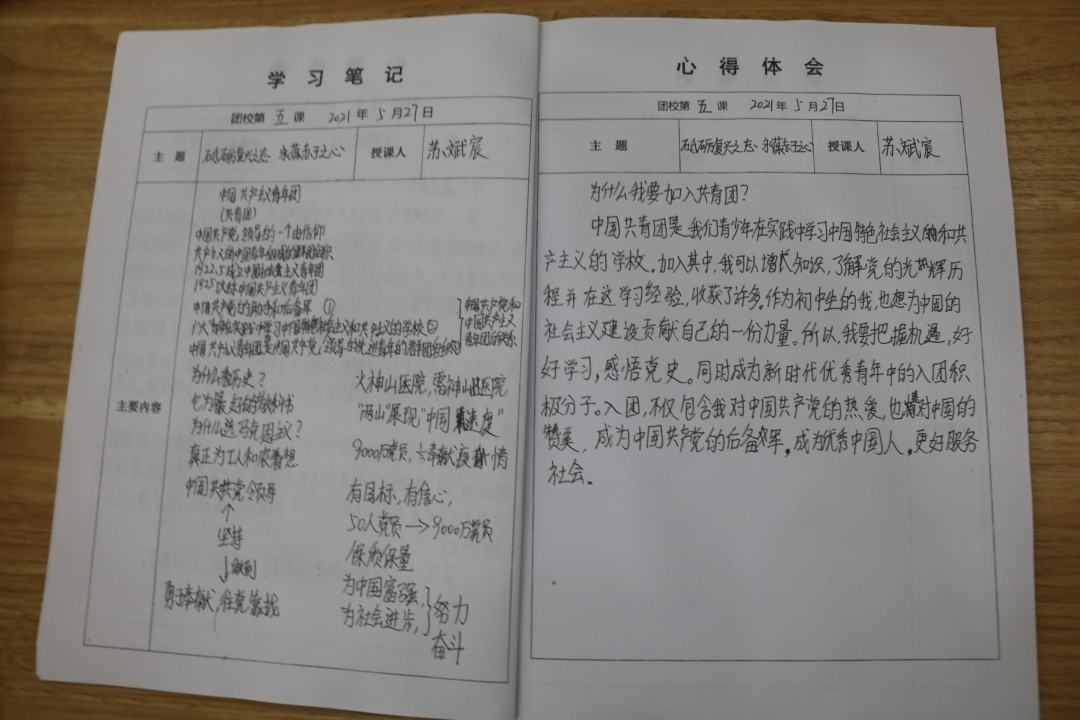 学习笔记
团校第 五 课 2021 年 5 月 27 日
主题 砥砺复兴之志、永葆赤子之心 授课人 苏斌宸
主要内容
中国共产主义青年团
(共青团)
中国共产党领导的一个由信仰
共产主义的中国青年组成的群团组织
1922.5成立中国社会主义青年团
1925改称中国共产主义青年团
中国共产党的助手和后备军 ①
广大青年在实践中学习中国特色社会主义和共产主义的学校 ②
中国共产主义青年团是中国共产党领导的先进青年的群团组织 ③
中国共产党和
中国共产主义
青年团的关系
为什么看历史?
它为最好的教科书
为什么选马克思主义?
真正为工人和农着想
中国共共党领导
↑
坚持
↓做到
勇于奉献,任党靠找
火神山医院,雷神山医院
“两山”展现“中国速度”
9000万党员,去奉献疫情
有目标,有信心,
50人党员→9000万党员
保质保量
为中国富强,
为社会进步,
努力
奋斗
心得体会
团校第 五 课 2021 年 5 月 27 日
主题 砥砺复兴之志、永葆赤子之心 授课人 苏斌宸
为什么我要加入共青团?
中国共青团是我们青少年在实践中学习中国特色社会主义的和共
产主义的学校。加入其中,我可以增长知识,了解党的光辉历
程并在这学习经验,收获了许多。作为初中生的我,也想为中国的
社会主义建设贡献自己的一份力量。所以,我要把握机遇,好
好学习,感悟党史。同时成为新时代优秀青年中的入团积
极分子。入团,不仅包含我对中国共产党的热爱,也对中国的
赞美,成为中国共产党的后备军,成为优秀中国人,更好服务
社会。